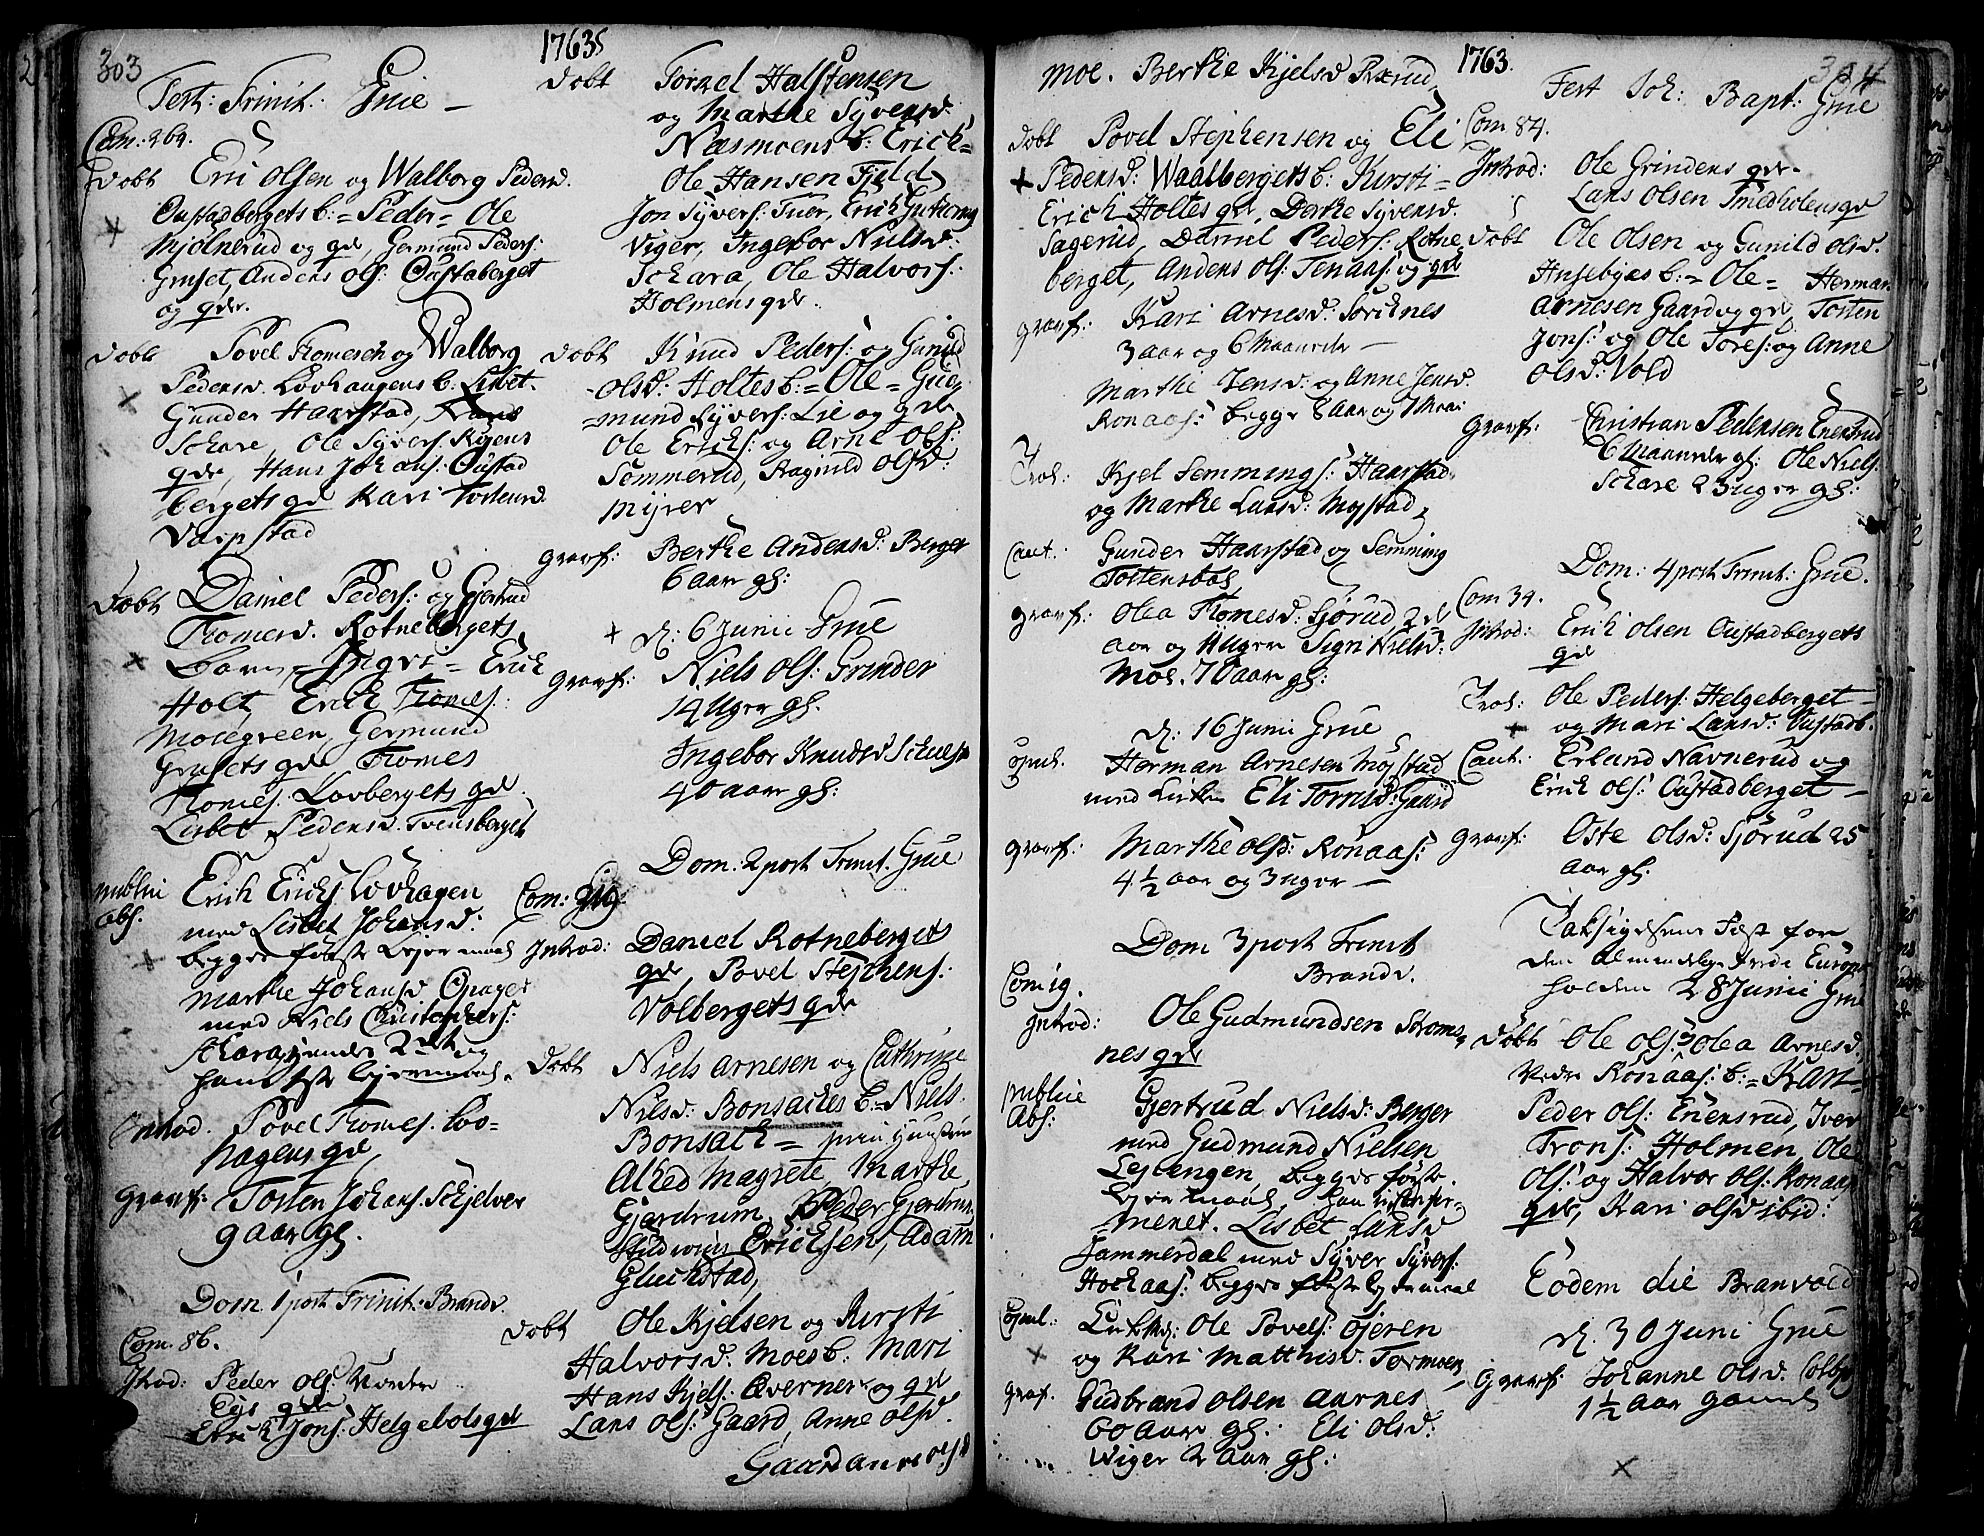 303
1763
Fest: Trinit: Grue
Com: 264.
Døbt Eric Olsen og Walborg Pedersd.
Oustadbergets b: = Peder = Ole
Mjølnerud og qde, Germund Peders:
Gruset, Anders Ols: Oustaberget
og qde.
Døbt Povel Thomesen og Walborg
Pedersd. Lovhaugens b: Lisbet.
Gunder Haarstad,
Schare, Ole Syvers: Rÿens
qde, Hans Johans: Oustad
bergets qd Kari Tostensd.
Varpstad
Døbt Daniel Peders: og Gjertrud
Thomesd. Rotnebergets
Barn = Ingri = Erich
Holt, Erich Thomes:
Moiegreen, Germund
Grusets qde Thomes
Thomes: Lovbergets qd.
Lisbet Pedersd. Tvensberget
publice
abs: Erich Erichs: Lovhagen
med Lisbet Johansd:
begges første Lejermaal
Marthe Johansd
med Niels Christophers:
Schara, hendes 2det og
hans 1ste Lejermaal.
Introd. Povel Thomes: Lov=
hagens qd
Gravf: Tosten Johans: Schjelver
9 aar gl.
Dom. 1 post Trinit: Brandv.
Com: 86.
Introd: Peder Ols: Vordre
qde
Erich Jons: Helgebols qd
Døbt Tornel Halstensen
og Marthe Syversd:
Næsmoens b: Erich=
Ole Hansen Field,
Jon Syvers: Tuer, Erich
Viger, Ingebor Nielsd:
Schara, Ole Halvors:
Holmens qde.
Døbt Knud Peders: og Gunild
Olsd: Holtes b: = Ole = Gud
=mund Syvers: Lie og qde
Ole Erichs: og Arne Ols:
Sommerud, Ragnild Olsd:
Myrer
Gravf: Berthe Andersd: Berger
6 aar gl:
d: 6 Junii Grue
Gravf: Niels Ols: Grinder
14 Uger gl.
Ingebor Knudsd
40 aar gl:
Dom: 2 post Trinit. Grue
Com:
Introd: Daniel Rotnebergets
qde, Povel Stephens:
Volbergets qde
Døbt Niels Arnesen og Cathrine
Nilsd: Bonsaches b: = Niels
Bonsach =
Alhed Magrete, Marthe
Gjerdrum, Peder Gjerdrum
Studiosus Erichsen, Adam
Gluckstad,
Døbt Ole Kjelsen og Kursti
Halvorsd: Moes b: Mari
Hans Kjels: Qverner og qde
Lars Ols: Gaard, Anne Olsd.
Gaard
1763.
304
Moe. Berthe Kjelsd Prærud,
Døbt Povel Stephensen og Eli
Pedersd: Waalbergets b: Kursti =
Erich Holtes qde, Dorthe Syversd.
Sagerud, Daniel Peders: Rotne
berget, Anders Ols: Tenaas: og qde
Gravf: Kari Arnesd: Sorknes
3 aar og 6 Maaneder —
Marthe Jensd: og Anne Jensd.
Ronaas: begge 8 aar og 7 Maa:
Trol: Kjel Semmings: Haarstad.
og Marthe Larsd: Mojstad,
Caut.: Gunder Haarstad og Semming
Tostensbøl
Gravf: Olea Thomesd: Sjørud 2
aar og 11 Uger Sigri Nielsd:
Moe. 70 aar gl:
d: 16 Junii Grue
Copul. Herman Arnesen Mojstad
med Eli Torrisd: Gaard
Gravf: Marthe Olsd: Ronaas:
4 ½ aar og 3 uger —
Dom 3 post Trinit
Brandv.
Com 19.
Introd: Ole Gudmundsen Strøms
nes qde
publice
Abs: Gjertrud Nielsd: Berger
med Gudmund Nielsen
Lejrengen, begges første
Lejermaal
=menet. Lisbet Larsd
Jammerdal med Syver Syvers:
Hochaas: begges første Lejermaal
Copul: Ole Povels: Ojeren
og Kari Matthisd: Tørmoen
Graf. Gudbrand Olsen Aarnes
60 aar gl: Eli Olsd:
Wiger 2 aar gl:
Fest Joh: Bapt: Grue
Com 84.
Introd: Ole Grindens qde.
Lars Olsen Smedholens qd
Døbt Ole Olsen og Gunild Olsd.
Husebyes b: = Ole = Herman
Arnesen Gaard og qde, Tosten
Jons: og Ole Tores: og Anne
Olsd: Vold
Gravf: Christian Pedersen Enersrud
6 Maaneder gl: Ole Niels:
Schare 23 uger gl:
Dom: 4 post Trinit: Grue.
Com 34.
Introd: Erich Olsen Oustadbergets
qd
Trol: Ole Peders: Helgeberget
og Mari Larsd: Oustadb.
Caut: Erland Navnerud og
Erich Ols: Oustadberget —
Gravf: Oste Olsd: Sjørud 25
aar gl.
Taksigelsens Fest for
den almindelige Frede Europæ
holden 28 Junii Grue
Døbt Ole Ols: Olea Arnesd.
Ronaas: b: = Kari
Peder Ols: Enersrud, Iver
Trons: Holmen, Ole
Ols: og Halvor Ols: Ronaas
qde, Kari Olsd ibid:
Eodem die Branvold
d. 30 Juni Grue
Gravf: Johanne Olsd.
1 ½ aar gammel